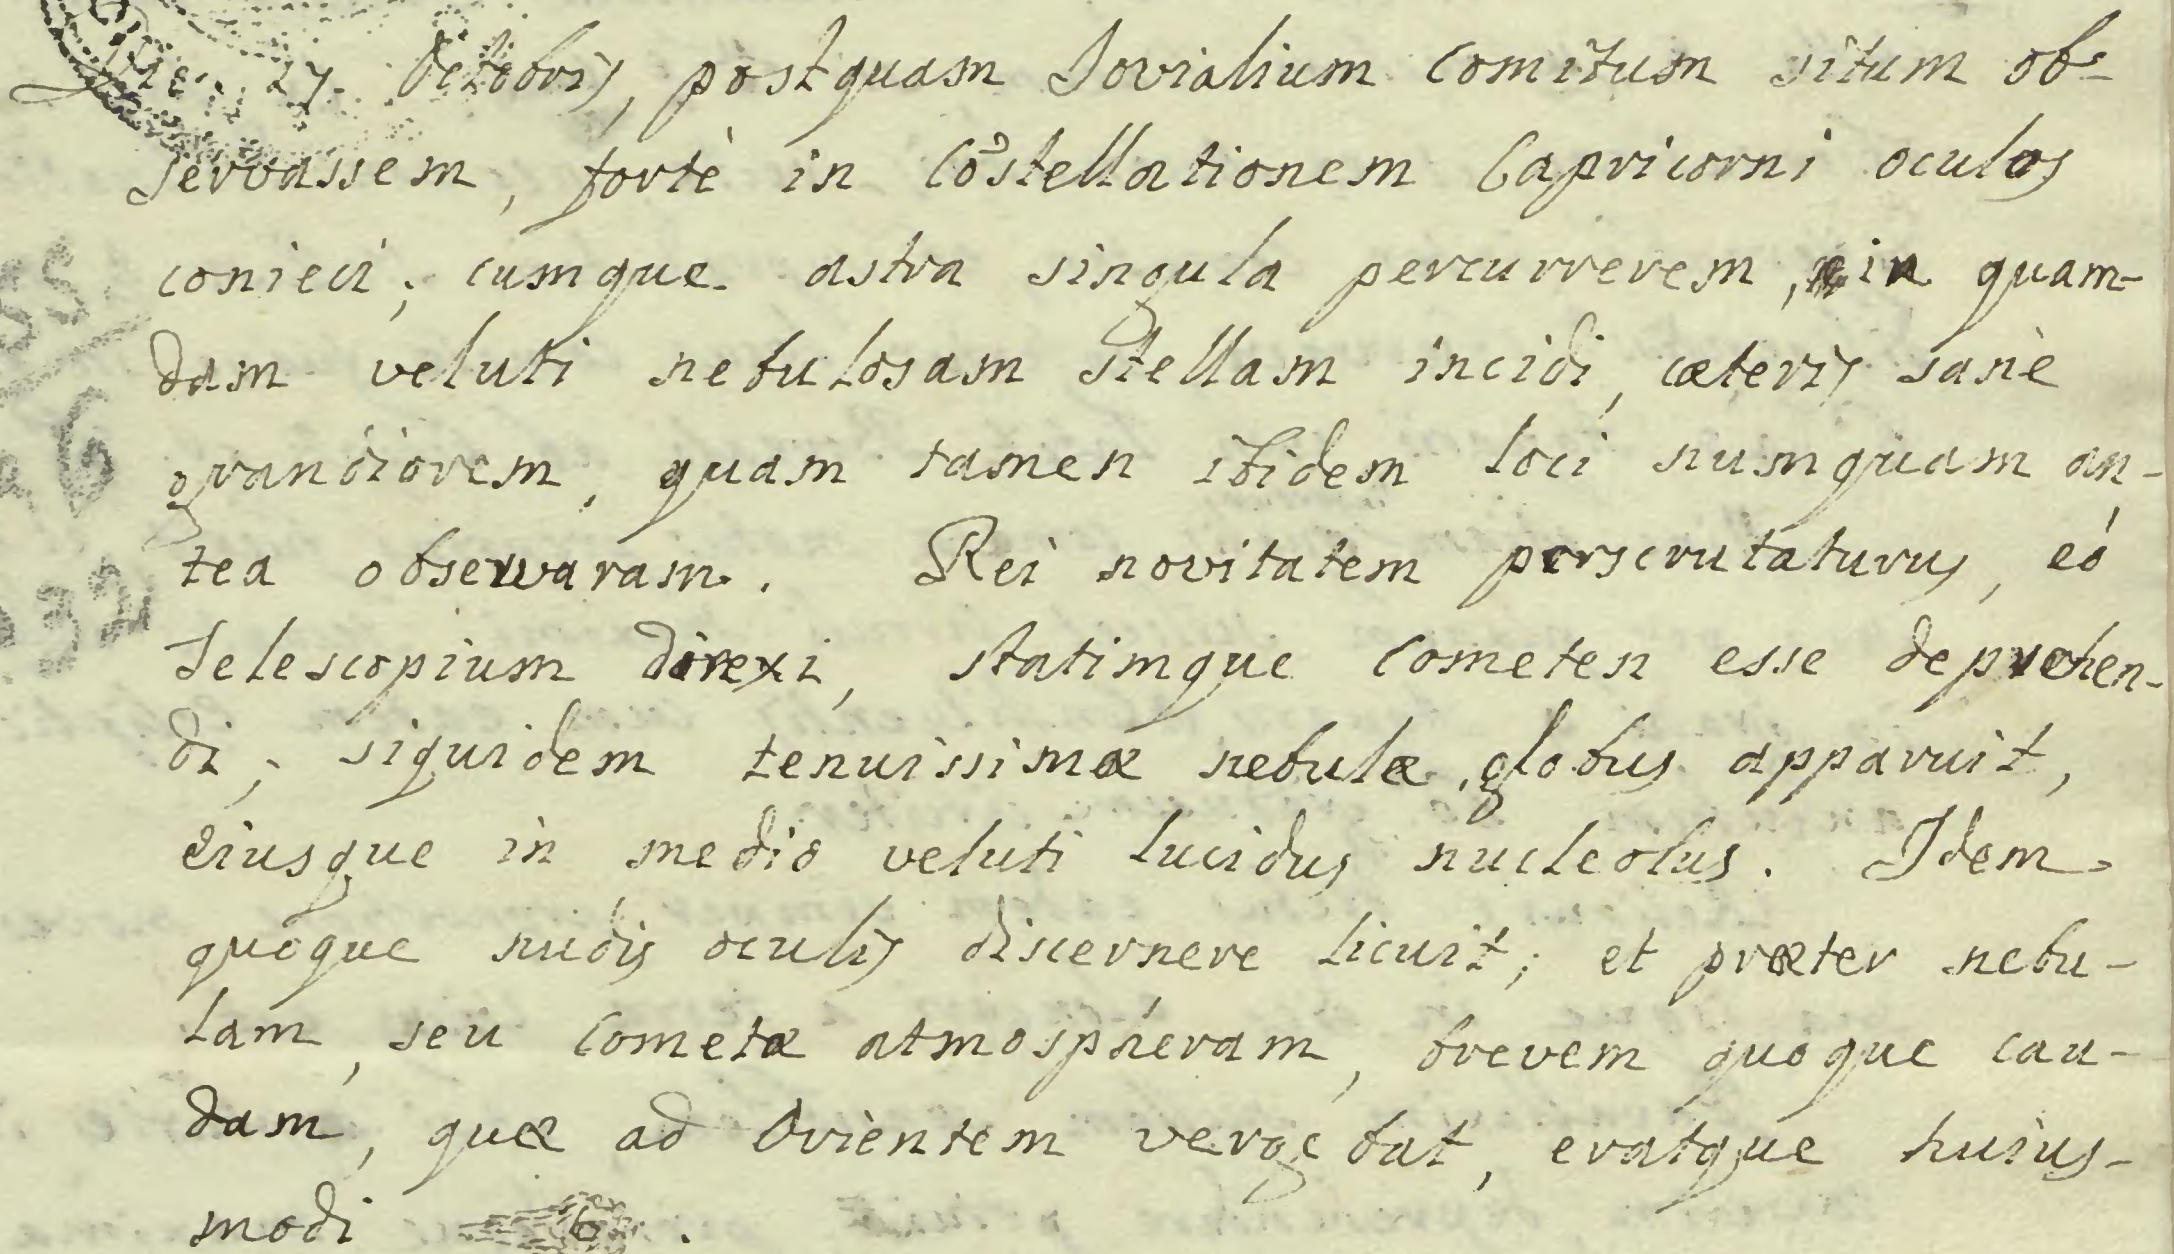 Die 17. Octobris, postquam Jovialium Comitum situm ob-
servassem, fortè in Cõstellationem Capricorni oculos
conieci; cumque astra singula percurrerem, in quam-
dam veluti nebulosam stellam incidi, cæteris sanè
grandiorem, quam tamen ibidem loci numquam an-
tea observaram. Rei novitatem perscrutaturus, eò
Telescopium direxi, statimque Cometen esse deprehen-
di; siquidem tenuissimæ nebulæ globus apparuit,
eiusque in medio veluti lucidus nucleolus. Idem
quoque nudis oculis discernere licuit; et præter nebu-
lam, seu Cometæ atmosphæram, brevem quoque cau-
dam, quæ ad Orientem vergebat, eratque huius-
modi